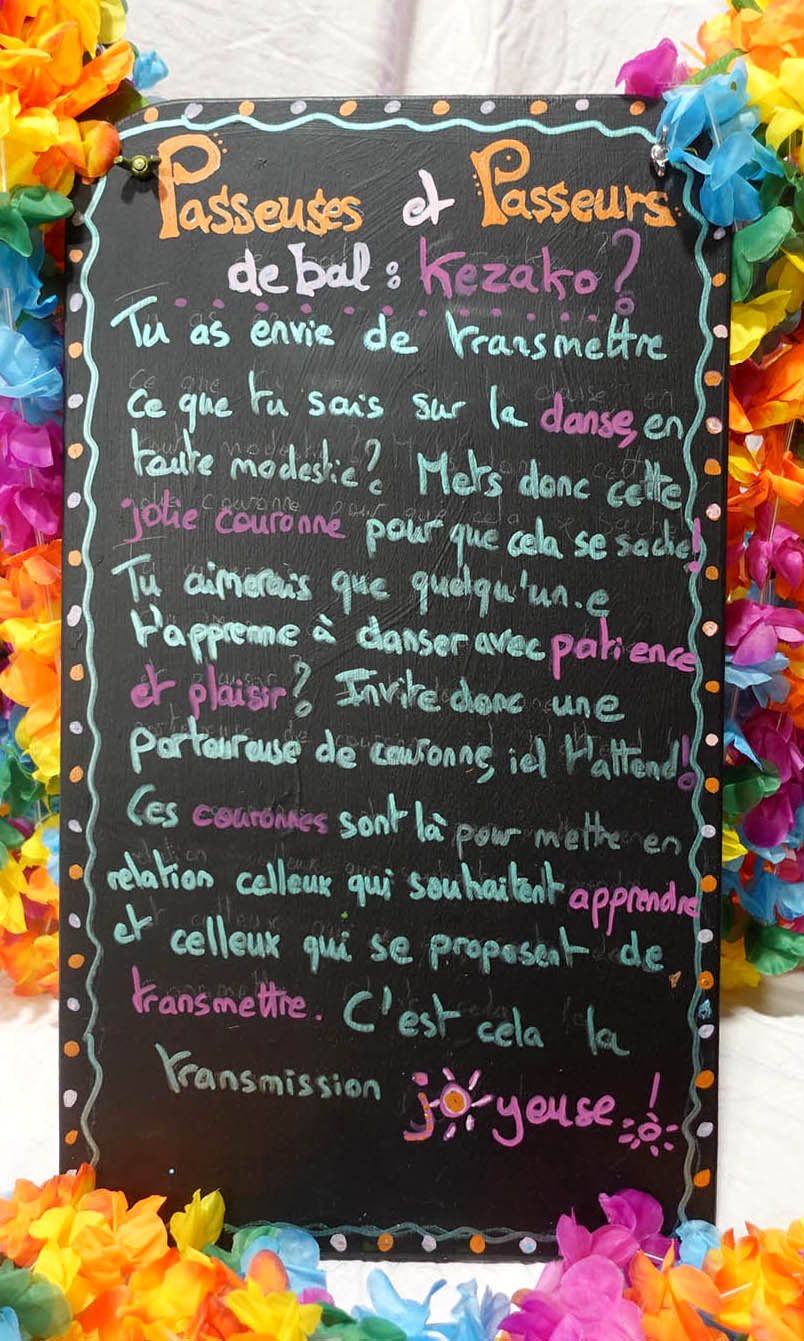 Passeuses et Passeurs
de bal : Kezako ?
Tu as envie de transmettre
ce que tu sais sur la danse, en
toute modestie ? Mets donc cette
jolie couronne pour que cela se sache !
Tu aimerais que quelqu'un.e
t'apprenne à danser avec patience
et plaisir ? Invite donc une
porteureuse de couronne, iel t'attend !
Ces couronnes sont là pour mettre en
relation celleux qui souhaitent apprendre
et celleux qui se proposent de
transmettre. C'est cela la
transmission joyeuse !